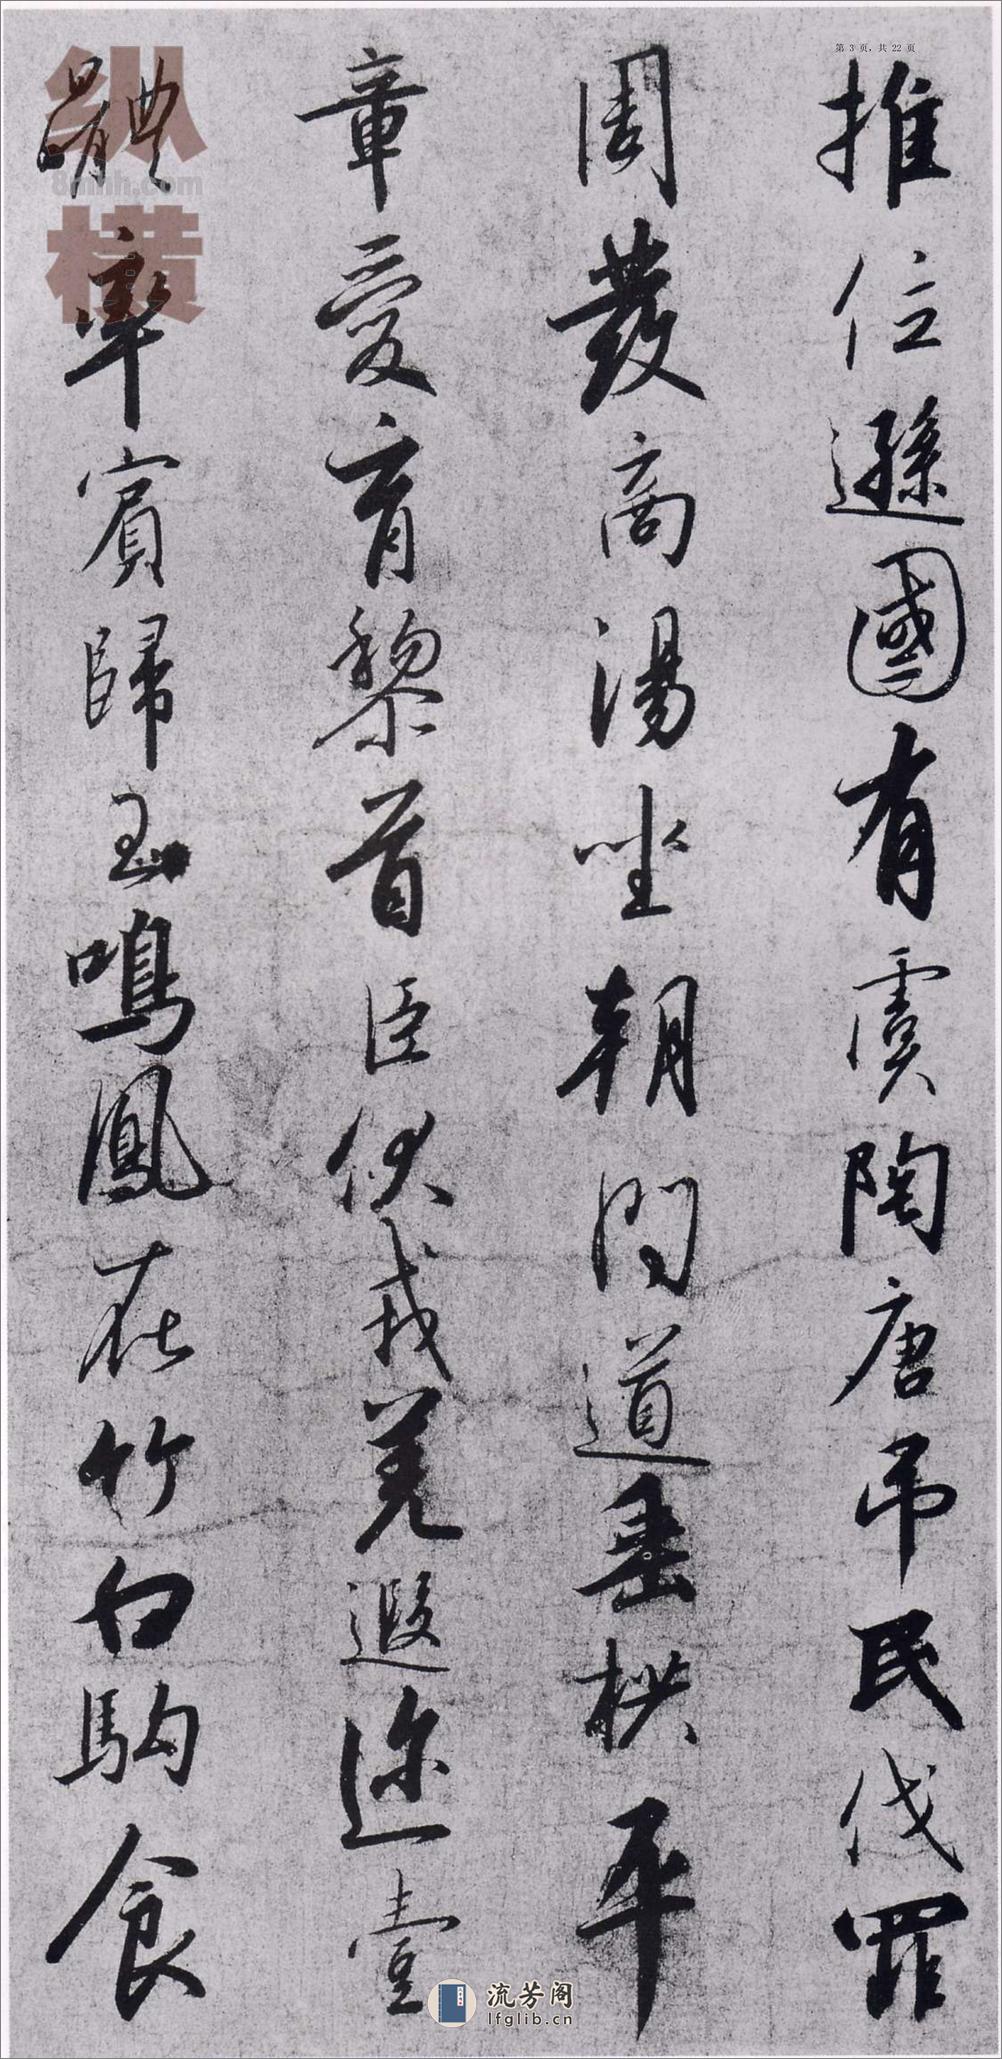 第 3 页，共 22 页
推位遜國有虞陶唐吊民伐罪
周發商湯坐朝問道垂拱平
章愛育黎首臣伏戎羌遐迩壹
體率賓歸王鳴鳳在竹白駒食
纵
横
流芳阁
lfglib.cn